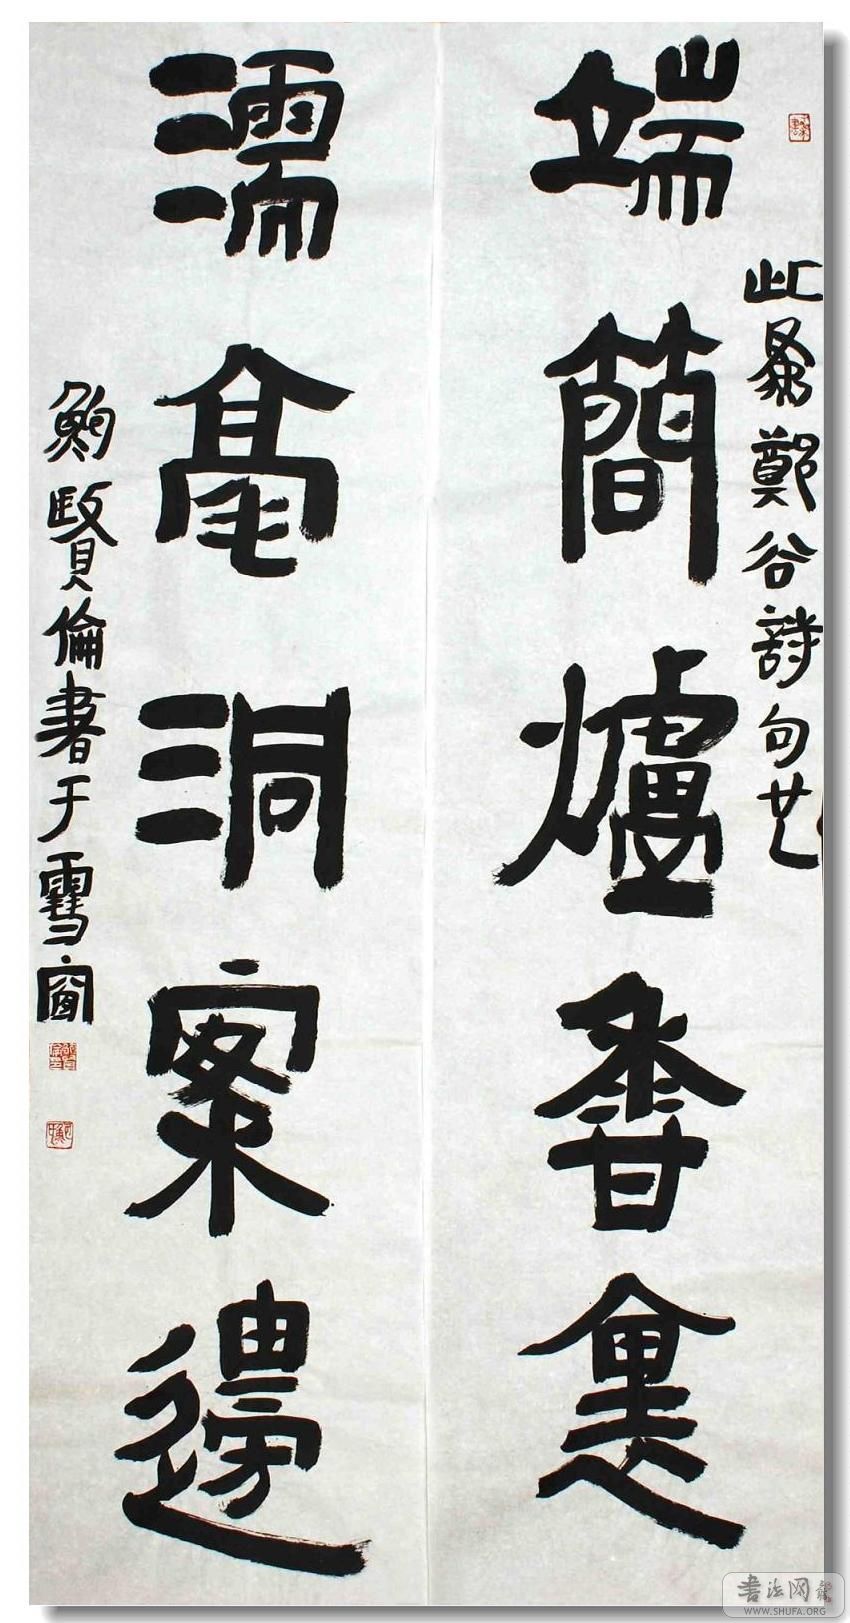 端簡爐香裏
此鄭谷詩句也
濡毫洞案邊
鮑賢倫書于雪窗
書法网
WWW.SHUFA.ORG